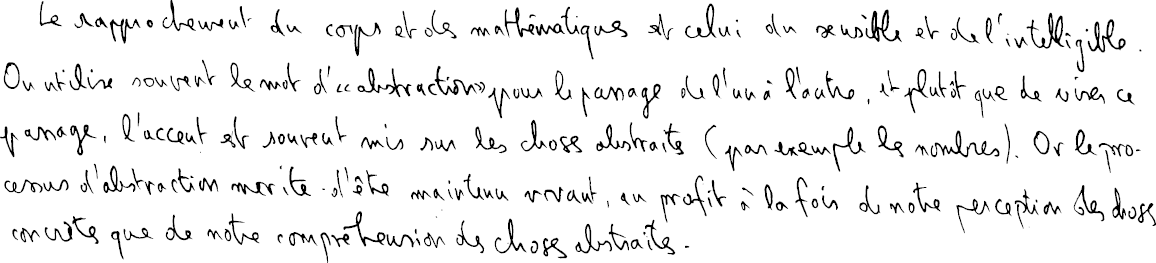 Le rapprochement du corps et des mathématiques est celui du sensible et de l'intelligible.
On utilise souvent le mot d'«abstraction» pour le passage de l'un à l'autre, et plutôt que de vivre ce
passage, l'accent est souvent mis sur les choses abstraites (par exemple les nombres). Or le pro-
cessus d'abstraction mérite d'être maintenu vivant, au profit à la fois de notre perception des choses
concrètes que de notre compréhension des choses abstraites.